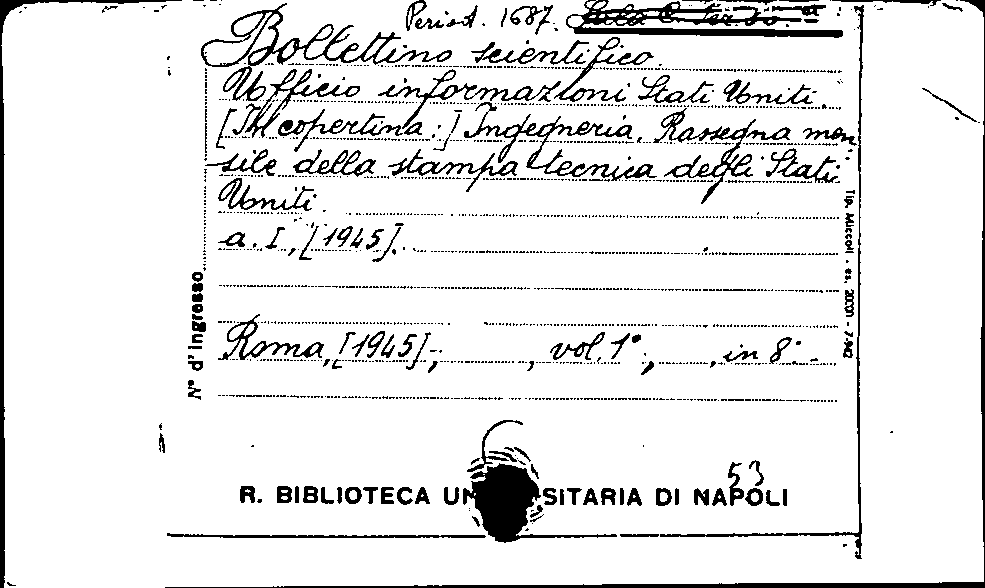 Period. 1687.
Bollettino scientifico.
Ufficio informazioni Stati Uniti.
[In copertina:] Ingegneria. Rassegna men-
sile della stampa tecnica degli Stati
Uniti.
a. I, [1945].
Roma, [1945]-; , vol. 1°-; , in 8°.-
N° d'ingresso
Tip. Miccoli - es. 20000 - 7-942
53
R. BIBLIOTECA UN SITARIA DI NAPOLI